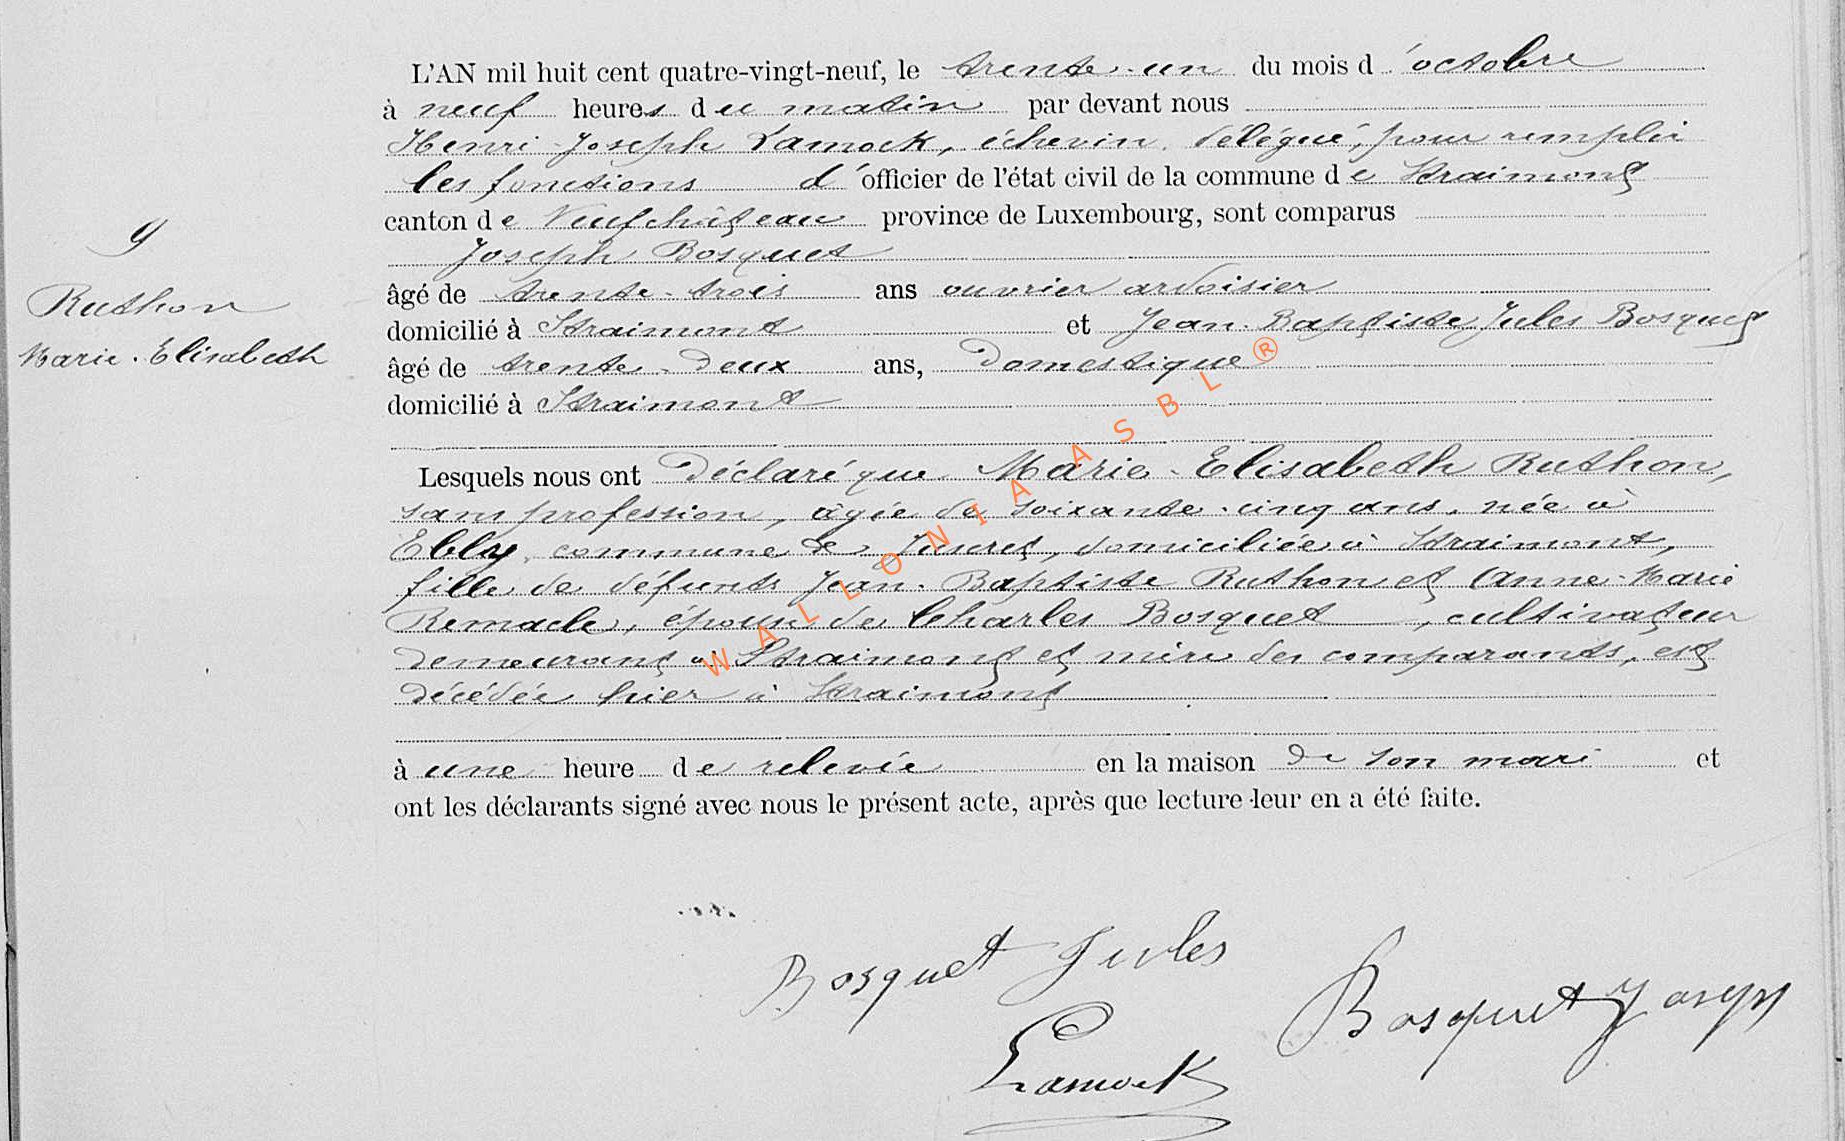 L'AN mil huit cent quatre-vingt-neuf, le trente-un du mois d'octobre
à neuf heures du matin par devant nous
Henri-Joseph Lamock, échevin, délégué, pour remplir
les fonctions d'officier de l'état civil de la commune de Straimont
canton de Neufchâteau province de Luxembourg, sont comparus
9
Joseph Bosquet
Ruthon
Marie-Elisabeth
âgé de trente-trois ans ouvrier ardoisier
domicilié à Straimont et Jean-Baptiste Jules Bosquet
âgé de trente-deux ans, Domestique
domicilié à Straimont
Lesquels nous ont déclaré que Marie-Elisabeth Ruthon,
sans profession, âgée de soixante-cinq ans, née à
Ebly, commune de Juseret, domiciliée à Straimont,
fille de défunts Jean-Baptiste Ruthon et Anne-Marie
Remacle, épouse de Charles Bosquet, cultivateur
demeurant à Straimont et mère des comparants, est
décédée hier à Straimont
à une heure de relevée en la maison de son mari et
ont les déclarants signé avec nous le présent acte, après que lecture leur en a été faite.
Bosquet Jules
Bosquet Joseph
Lamock
WALLONIA ASBL ®